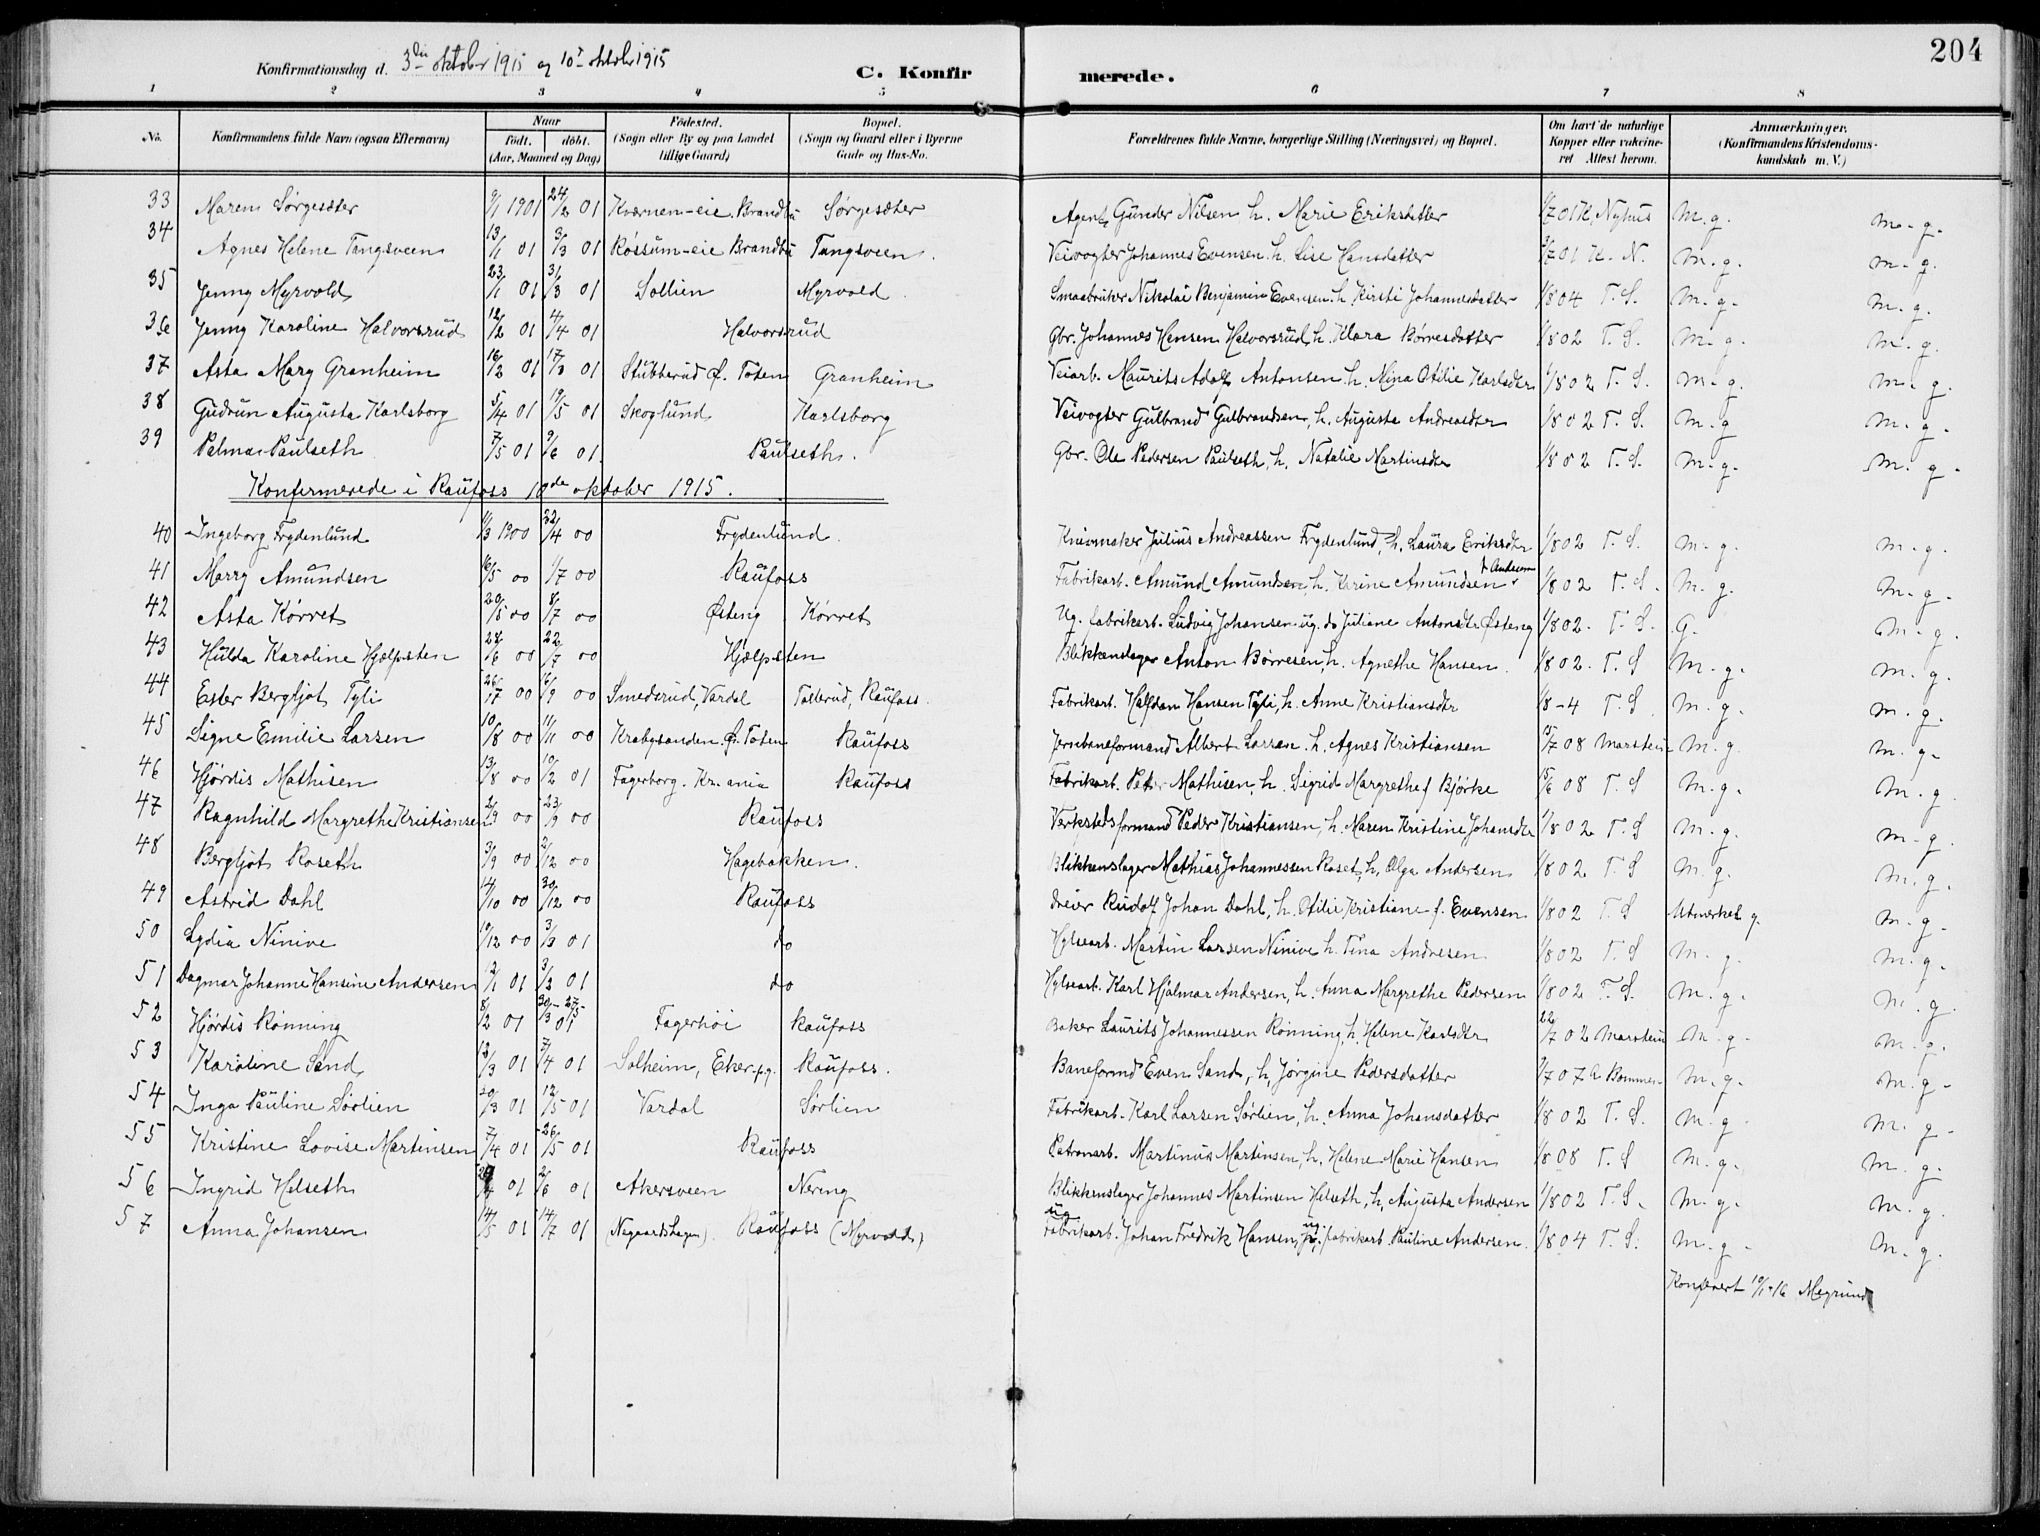 204
Konfirmationsdag d. 3die oktober 1915 og 10de oktober 1915 C. Konfirmerede.
1 2 3 4 5 6 7 8
No. Konfirmandens fulde Navn (ogsaa Efternavn) Naar født. døbt. (Aar, Maaned og Dag) Fødested. (Sogn eller By og paa Landet tillige Gaard) Bopæl. (Sogn og Gaard eller i Byerne Gade og Hus-No. Forældrenes fulde Navne, borgerlige Stilling (Næringsvei) og Bopæl. Om havt de naturlige Kopper eller vakcineret Attest herom. Anmærkninger. (Konfirmandens Kristendomskundskab m. V.)
33 Maren Sørgesæter 9/1 1901 24/2 01 Kværnen-eie, Brandbu Sørgesæter Agent Gunder Nilsen h. Marie Eriksdatter 1/7 01 K. Nyhus M. g. m. g.
34 Agnes Helene Tangsveen 13/1 01 3/3 01 Røssum-eie Brandbu Tangsveen. Veivogter Johannes Evensen h. Lise Hansdatter 3/7 01 K. N. M. g. m. g.
35 Jenny Myrvold 23/1 01 31/3 01 Sollien Myrvold Smaabruker Nikolai Benjamin Evensen h. Kirsti Johannesdatter 1/8 04 T. S. M. g. m. g.
36 Jenny Karoline Halvorsrud 12/2 01 4/4 01 Halvorsrud Gbr. Johannes Hansen Halvorsrud, h. Klara Børresdatter 1/8 02 T. S. M. g. m. g.
37 Asta Mary Granheim 16/2 01 17/3 01 Stubberud Ø. Toten Granheim Veiarb. Maurits Adolf Antonsen h. Nina Otilie Karlsdtr 1/8 02 T. S. M. g. m. g.
38 Gudrun Augusta Karlsborg 5/4 01 19/5 01 Skoglund Karlsborg Veivogter Gulbrand Gulbrandsen, h. Augusta Andreasdtr 1/8 02 T. S. M. g m. g.
39 Palma Paulseth 7/5 01 9/6 01. Paulseth. Gbr. Ole Pedersen Paulseth, h. Natalie Martinsdtr 1/8 02 T. S. M. g. m. g.
Konfermerede i Raufoss 10de oktober 1915.
40 Ingeborg Frydenlund 11/3 1900 22/4 00 Frydenlund. Knivmaker Julius Andreassen Frydenlund, h. Laura Eriksdtr 1/8 02 T. S. m. g. m. g.
41 Marry Amundsen 16/5 00 1/7 00 Raufoss Fabrikarb. Amund Amundsen, h. Karine Amundsen f. Andersen 1/8 02 T. S. M. g. m. g.
42 Asta Kørret 20/5 00 8/7 00 Østeng Kørret Ug. fabrikarb. Ludvig Johansen ug. do Juliane Antonsdtr. Østeng 1/8 02. T. S. G. m. g.
43 Hulda Karoline Hjælpsten 28/6 00 22/7 00 Hjælpsten Blikkenslager Anton Børresen, h. Agnethe Hansen. 1/8 02. T. S M. g. m. g.
44 Ester Bergljot Tyli 26/7 00 16/9 00 Smedsrud, Vardal Tollerud, Raufoss. Fabrikarb. Halfdan Hansen Tyli, h. Anne Kristiansdtr 1/8-4 T. S. M. g. m. g.
45 Signe Emilie Larsen 10/8 00 11/11 00 Krabysanden. Ø. Toten Raufoss Jernbaneformand Albert Larsen. h. Agnes Kristiansen 15/7 08 Marstein M. g. m. g.
46 Hjørdis Mathisen 13/8 00 10/2 01 Fagerborg. Kr.ania Raufoss Fabrikarb. Peter Mathisen, h. Sigrid Margrethe f. Bjørke 15/6 08 T. S M. g. m. g.
47 Ragnhild Margrethe Kristiansen 2/9 00 23/9 00 Raufoss Verkstedsformand Peder Kristiansen, h. Maren Kristine Johansdtr 1/8 02 T. S M. g. m. g.
48 Bergljot Roseth 3/9 00 2/12 00 Hagebakken. Blikkenslager Mathias Johannessen Roset, h. Olga Andersen 1/8 02 T. S M. g. m. g.
49 Astrid Dahl 14/10 00 30/12 00 Raufoss Dreier Rudolf Johan Dahl, h. Otilie Kristiane f. Evensen 1/8 02 T. S Utmerket g. m. g.
50 Lydia Ninive 10/12 00 3/3 01 do Hylsearb. Martin Larsen Ninive h. Tina Andresen 1/8 02 T. S M. g. m. g.
51 Dagmar Johanne Hansine Andersen 2/1 01 3/3 01 do Hylsearb. Karl Hjalmar Andersen, h. Anna Margrethe Pedersen 1/8 02 T. S. M. g. m. g.
52 Hjørdis Rønning 8/2 01 01 Fagerhøi Raufoss Baker Laurits Johannessen Rønning, h. Helene Karlsdtr 22/7 02 Marstein M. g. m. g.
53 Karoline Sand 13/3 01 7/4 01 Solheim, Eker Raufoss. Baneformd Even Sand, h. Jørgine Pedersdatter 2/7 07 M. g. m. g.
54 Inga Pauline Sørlien 20/3 01 12/5 01 Vardal Sørlien Fabrikarb. Karl Larsen Sørlien, h. Anna Johansdatter 1/8 02 T. S. M. g. m. g.
55 Kristine Lovise Martinsen 7/4 01 26/5 01 Raufoss Patronarb. Martinus Martinsen, h. Helene Marie Hansen 1/8 08 T. S M. g. m. g.
56 Ingrid Helseth 01 2/6 01 Akersveen Nering Blikkenslager Johannes Martinsen Helseth, h. Augusta Andersen 1/8 02 T. S. M. g. m. g.
57 Anna Johansen 14/5 01 14/7 01 (Negaardshagen). Raufoss (Myrvold) ug Fabrikarb. Johan Fredrik Hansen, ug. fabrikarb. Pauline Andersen. 1/8 04 T. S. M. g. m. g.
Konferert 10/1-16